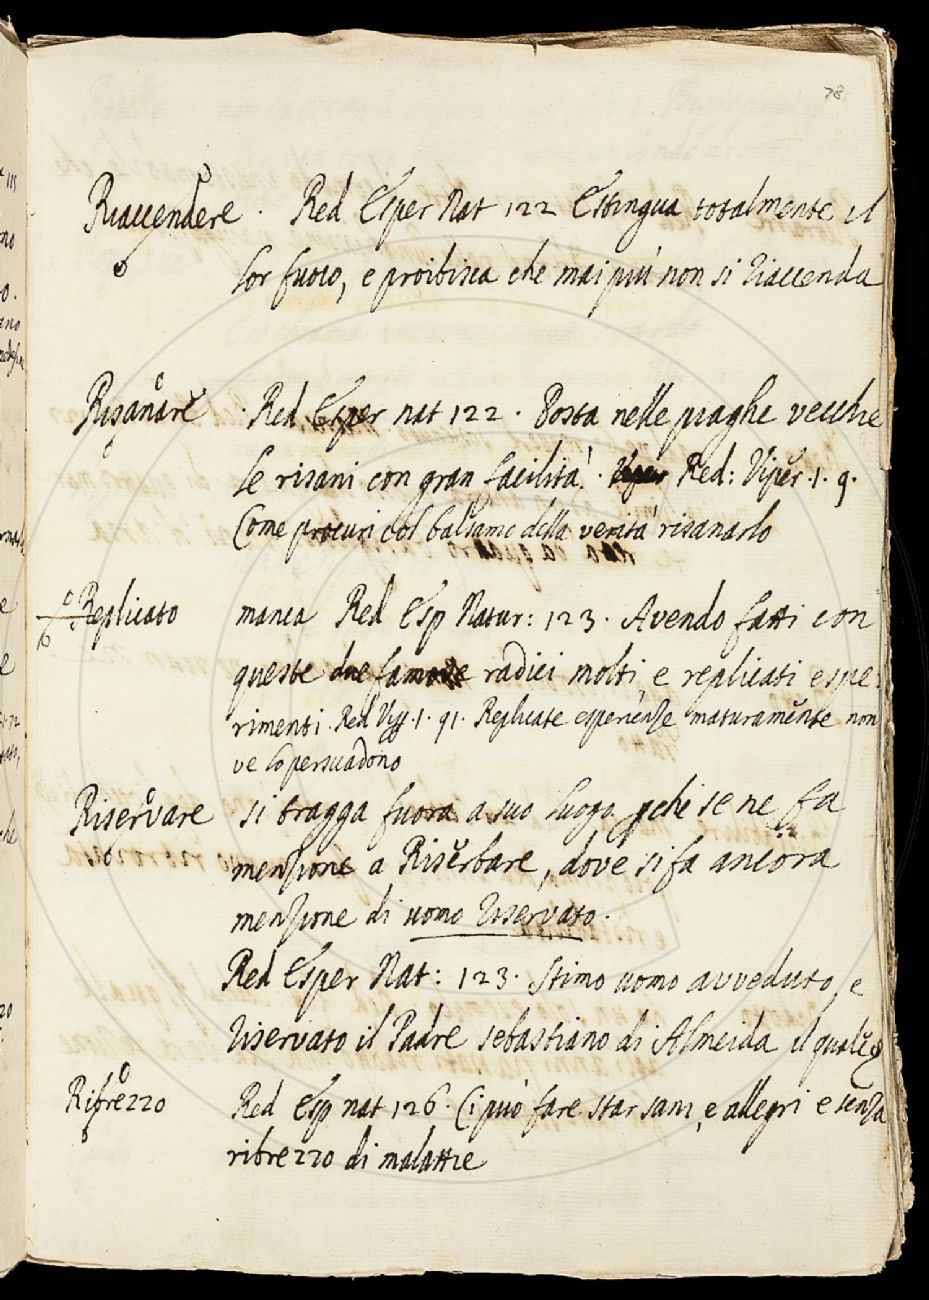 78
Riaccendere · Red Esper Nat 122 Estingua totalmente il
lor fuoco, e proibisca che mai piú non si riaccenda
Risanare · Red Esper nat 122 · Posta nelle piaghe vecchie
le risani con gran facilitá · Red: Viper · 1 · 9 ·
Come procuri col balsamo della veritá risanarlo
Replicato manca Red Esp Natur: 123 · Avendo fatti con
queste due famose radici molti, e replicati espe
rimenti · Red Vip · 1 · 91 · Replicate esperienze maturamente non
ve lo persuadono
Riservare si tragga fuora a suo luogo, pche se ne fa
menzione a Riserbare, dove si fa ancora
menzione di uomo riservato ·
Red Esper Nat: 123 · Stimo uomo avveduto, e
riservato il Padre Sebastiano di Almeida il quale
Ribrezzo Red Esp nat 126 · Ci puó fare star sani, e allegri e senza
ribrezzo di malattie